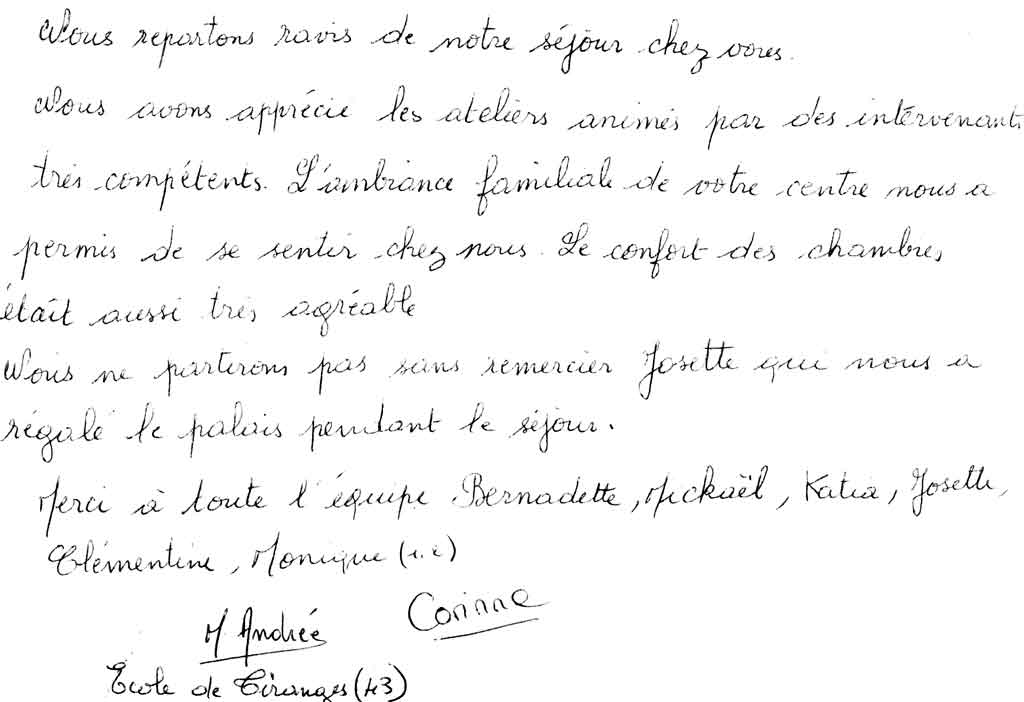 Nous repartons ravis de notre séjour chez vous.
Nous avons apprécié les ateliers animés par des intervenants
très compétents. L'ambiance familiale de votre centre nous a
permis de se sentir chez nous. Le confort des chambres
était aussi très agréable
Nous ne partirons pas sans remercier Josette qui nous a
régalé le palais pendant le séjour.
Merci à toute l'équipe Bernadette, Mickaël, Katia, Josette,
Clémentine, Monique
M Andrée Corinne
Ecole de Tiranges (43)